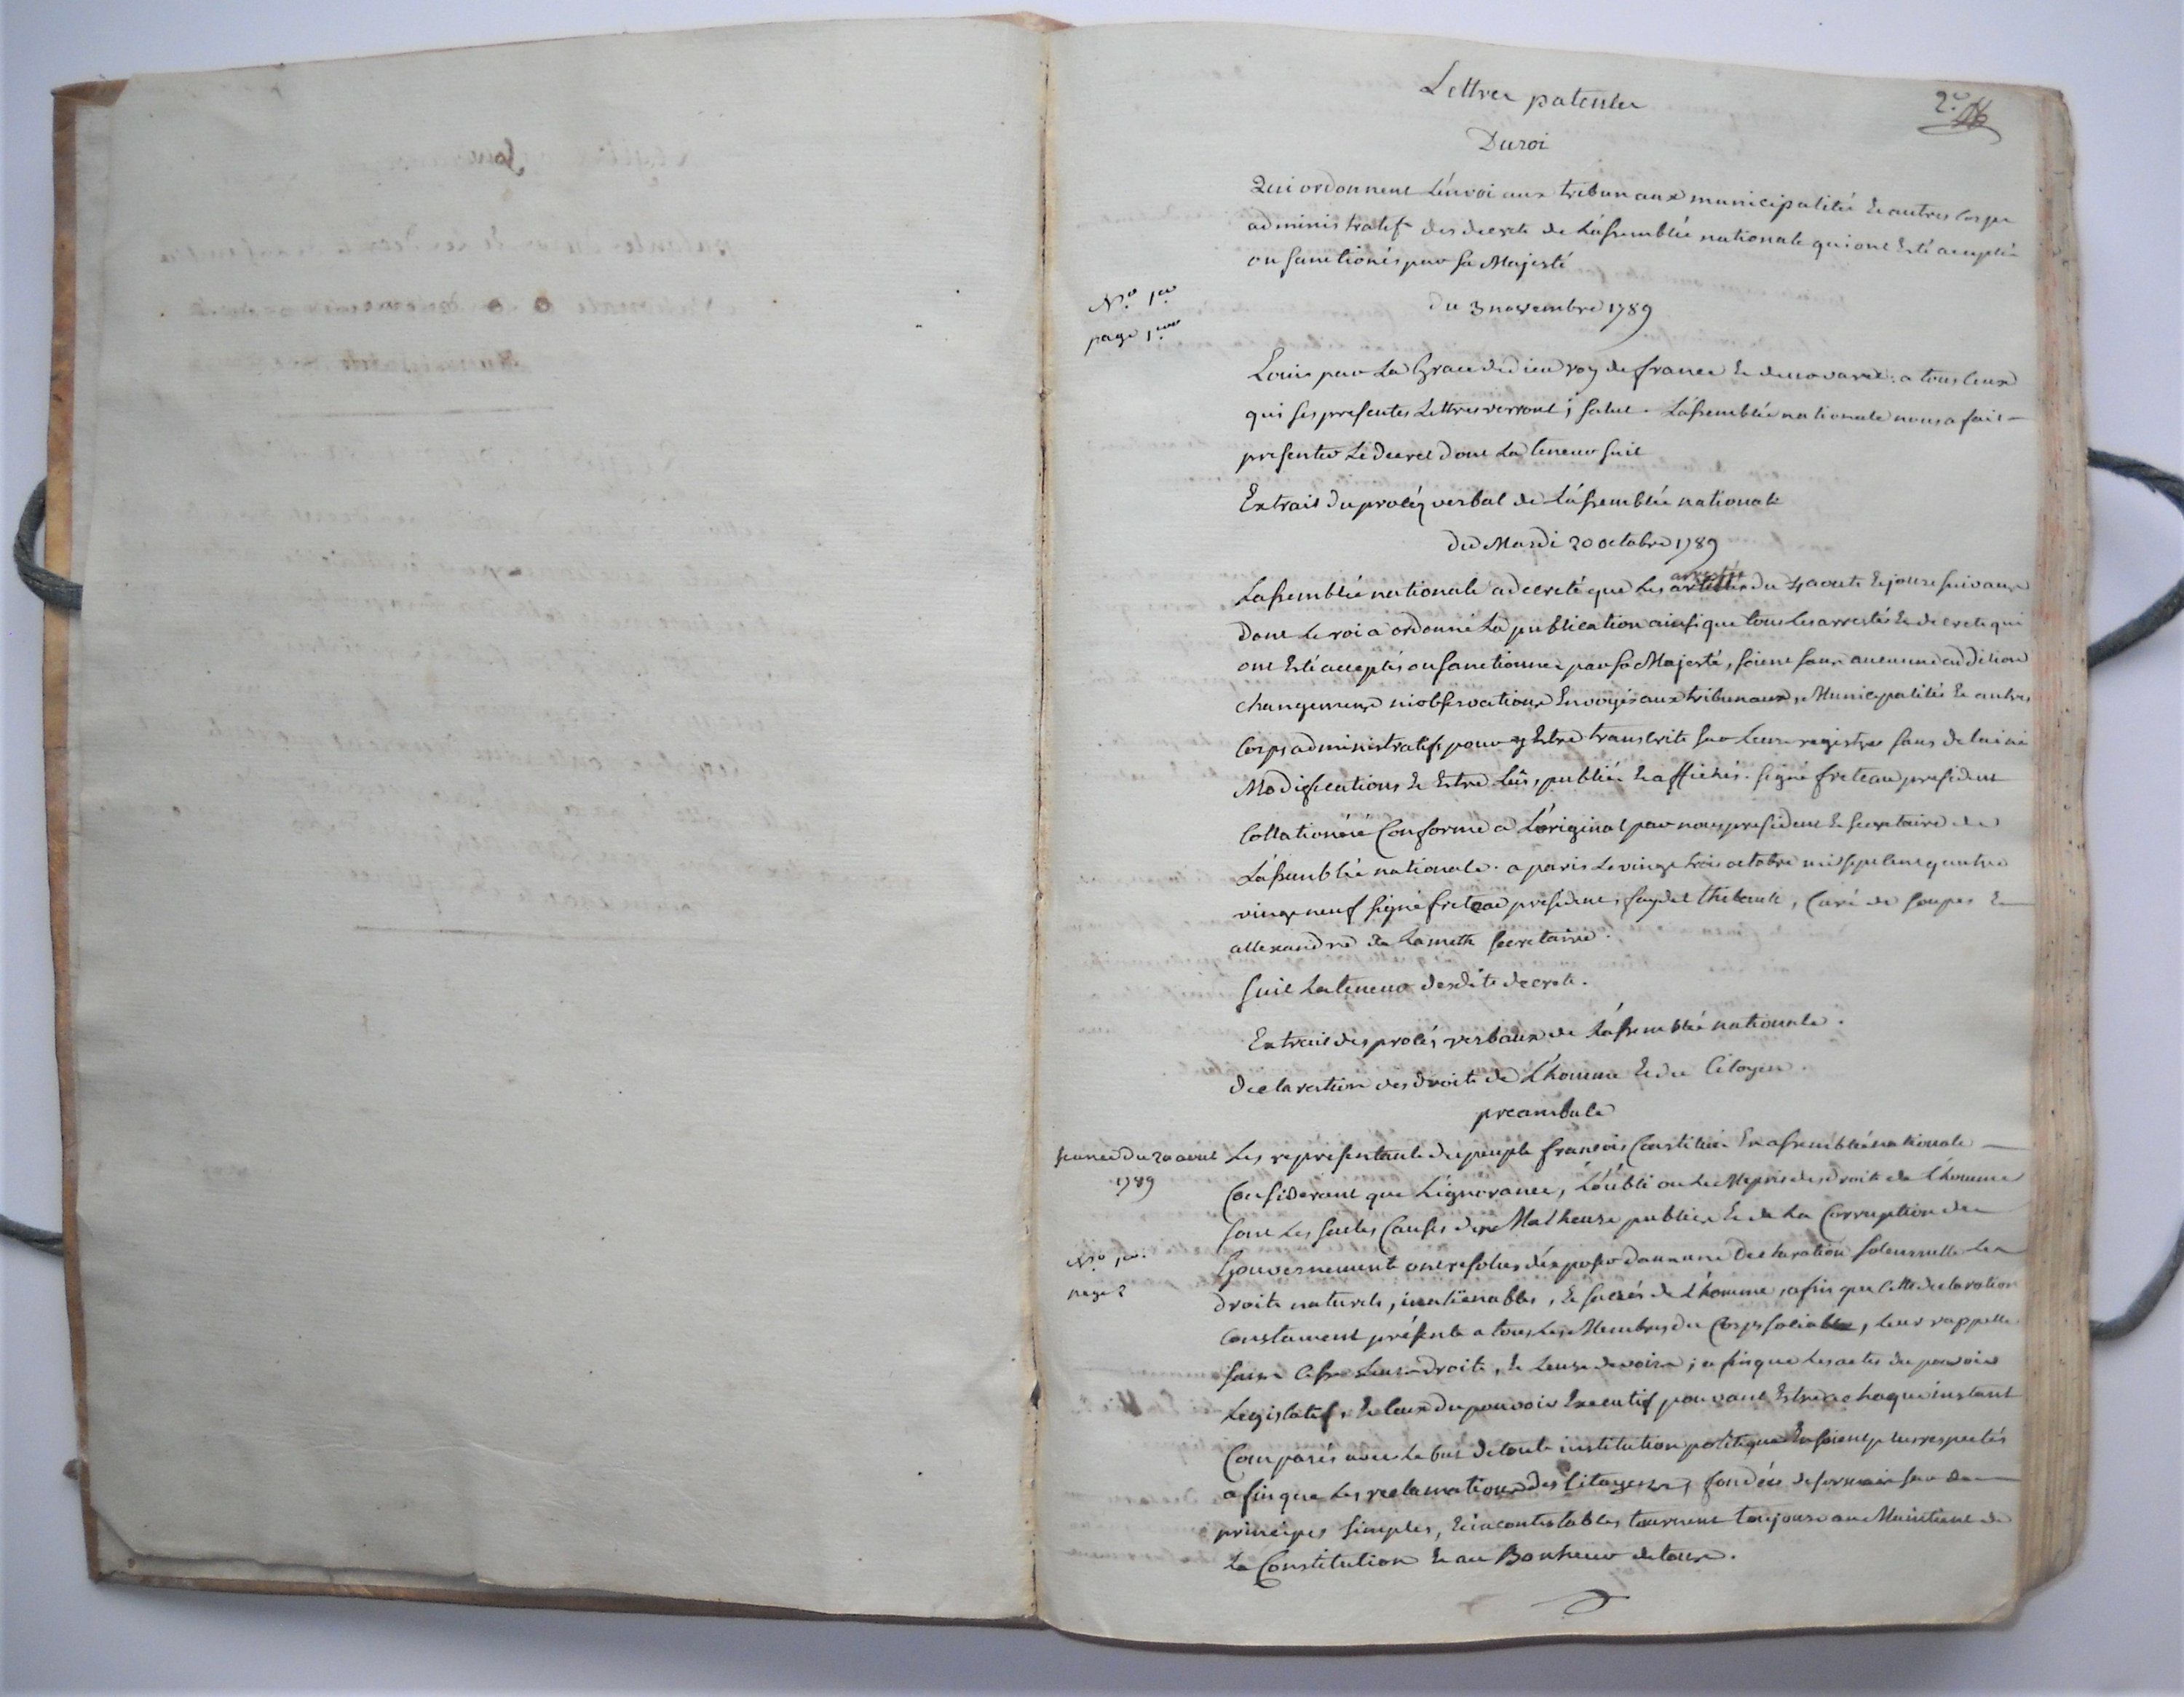 Lettres patentes
2.e
Du roi
Qui ordonnent L'énvoi aux tribunaux municipalités Et autres Corps
administratifs des decrets de L'assemblée nationale qui ont Esté acceptés
ou sanctionés par sa Majesté
N.o 1.er
page 1.ere
du 3 novembre 1789
Louis par La Grace de dieu roy de france Et de navarre. a tous Ceux
qui ses presentes Lettres verront; salut. L'assemblée nationale nous a fait
presenter Le decret dont La teneur suit
Extrait du procés verbal de L'assemblée nationale
du Mardi 20 octobre 1789
L'assemblée nationale a decreté que Les arrestés du 4 aoust Et jours suivants
dont Le roi a ordonné La publication ainsi que tous Les arrestés Et decrets qui
ont Esté acceptés ou sanctionnés par sa Majesté, soient sans aucune addition
changements ni observations Envoyés aux tribunaux, Municipalités Et autres
Corps administratifs pour y Estre transcrits sur Leurs registres sans delai ni
Modifications Et Estre Lûs, publiés Et affichés. signé freteau president
Collationné Conforme a L'original par nous president Et secretaires de
L'assemblée nationale. a paris Le vingt trois octobre mil sept cent quatre
vingt neuf signé freteau president, faydel thibault, Curé de soupes Et
allexandre de Lameth secretaires.
suit La teneur desdits decrets.
Extrait des procés verbaux de L'assemblée nationale.
declaration des droits de L'homme Et du Citoyen.
preambule
seance du 20 aout
1789
Les representants du peuple francois Constitués En assemblée nationale
Considerant que L'ignorance, L'oubli ou Le Mepris des droits de L'homme
sont Les seules Causes des Malheurs publics Et de La Corruption des
N.o 1.er
page 2
Gouvernements ont resolus d'éxposer dans une declaration solennelle Les
droits naturels, inaliénables, Et sacrés de L'homme, afin que Cette declaration
Constament présente a tous Les Membres du Corps social, Leur rappelle
sans Cesse Leurs droits, Et Leurs devoirs; afin que Les actes du pouvoir
Legislatif, Et Ceux du pouvoir Executif pouvant Estre a chaque instant
Comparés avec Le but de toute institution politique En soient plus respectés
afin que Les reclamations des Citoyens, fondées desormais sur des
principes simples, Et incontestables tournent toujours au Maintient de
La Constitution Et au Bonheur de tous.